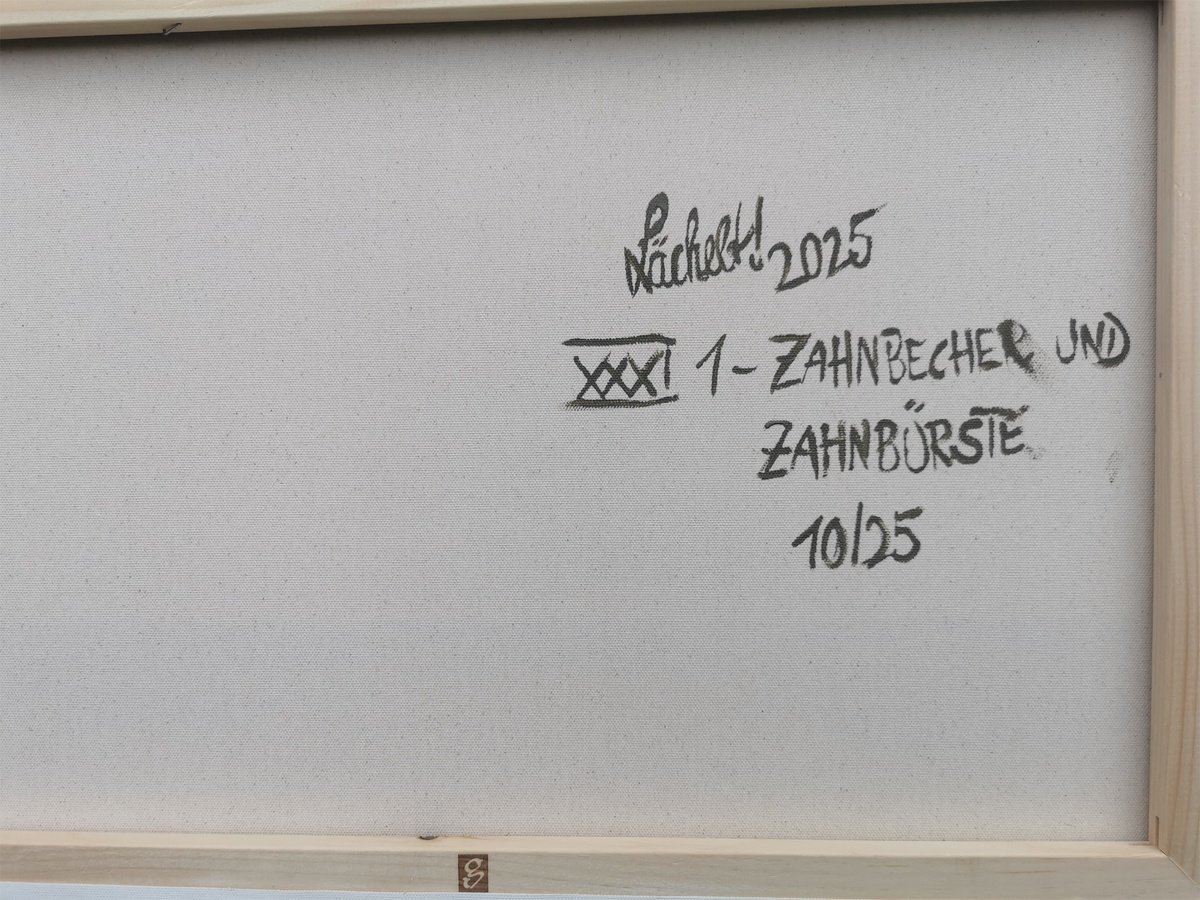 Lächelt! 2025
XXXI 1 - ZAHNBECHER UND
ZAHNBÜRSTE
10/25
g